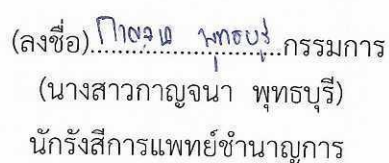 (ลงชื่อ)กาญจนา พุทธบุรี กรรมการ
(นางสาวกาญจนา พุทธบุรี)
นักรังสีการแพทย์ชำนาญการ